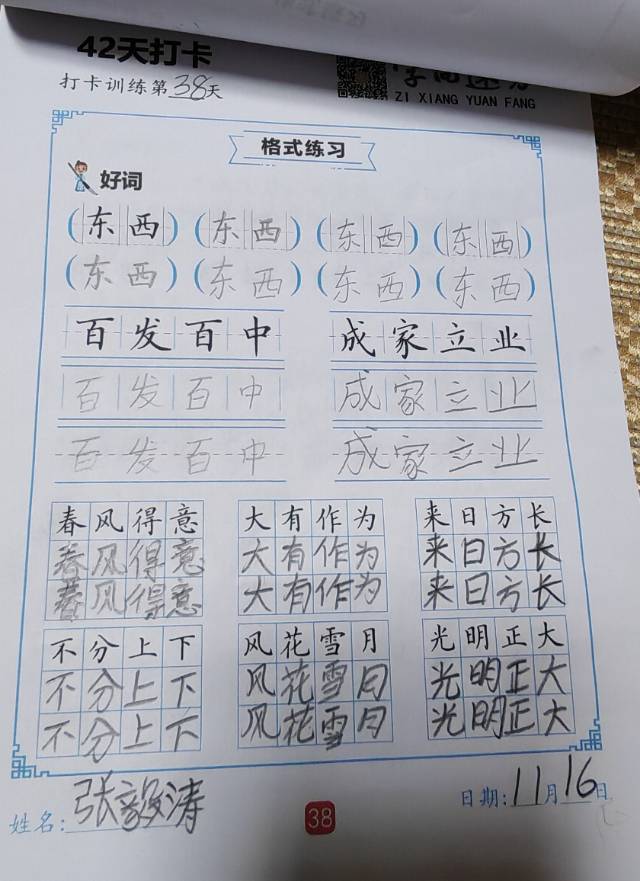 42天打卡
打卡训练第38天
ZI XIANG YUAN FANG
格式练习
好词
(东西) (东西) (东西) (东西)
(东西) (东西) (东西) (东西)
百发百中 成家立业
百发百中 成家立业
百发百中 成家立业
春风得意 大有作为 来日方长
春风得意 大有作为 来日方长
春风得意 大有作为 来日方长
不分上下 风花雪月 光明正大
不分上下 风花雪月 光明正大
不分上下 风花雪月 光明正大
姓名:张毅涛 38 日期:11月16日